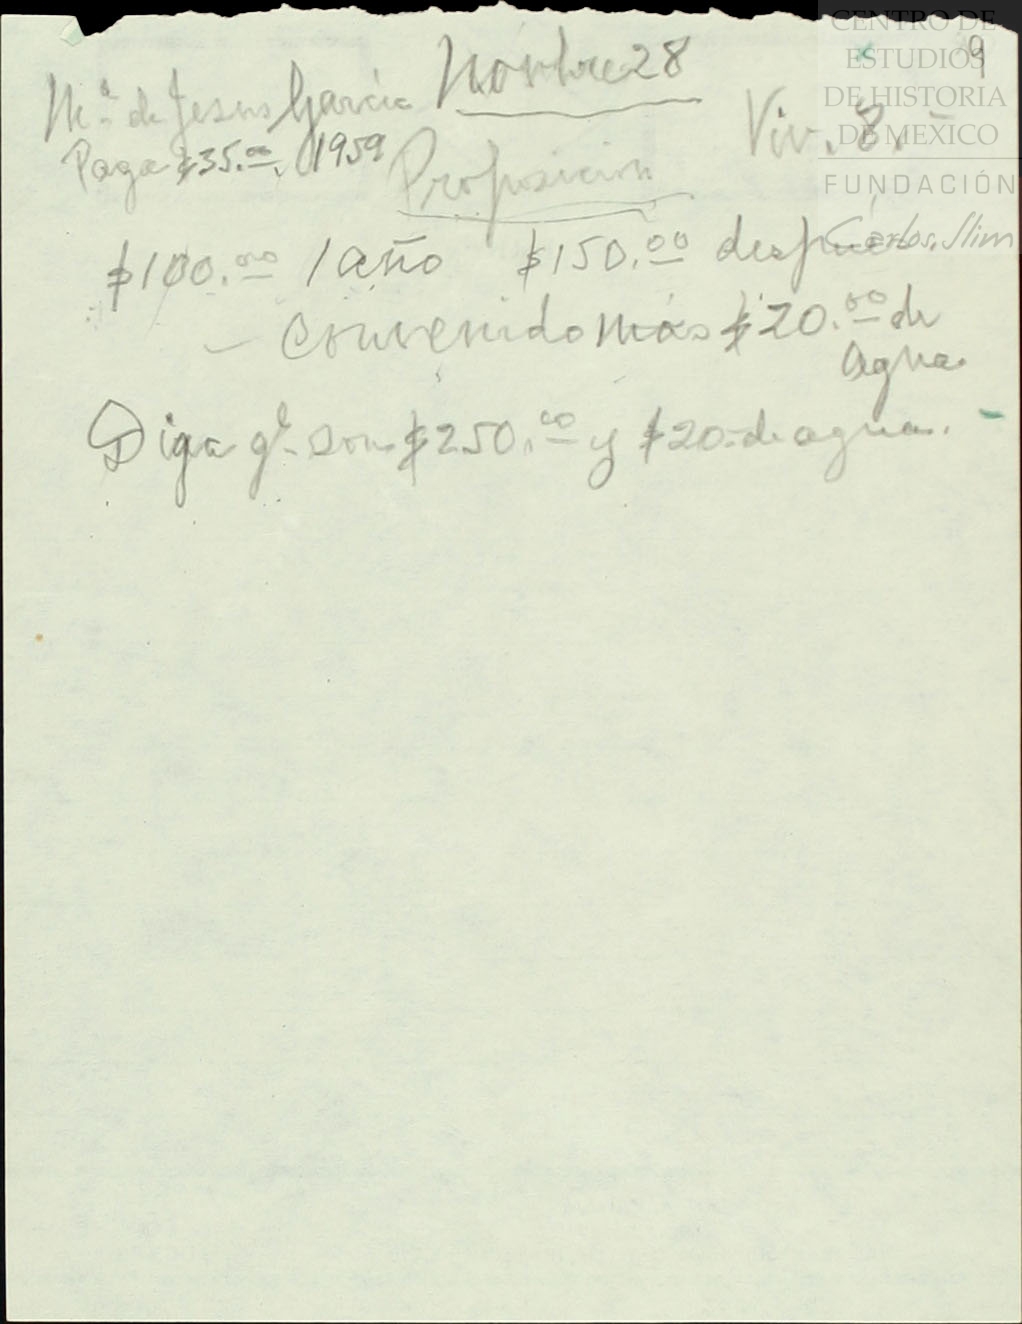 Novbre 28
9
Mª de Jesus García
Viv. 8.
Paga $35.00. 1959
Proposicion
$100.00 1 año $150.00 después.
- Convenido más $20.00 de
agua
Diga qe son $250.00 y $20 de agua.
CENTRO DE
ESTUDIOS
DE HISTORIA
DE MÉXICO
FUNDACIÓN
Carlos Slim